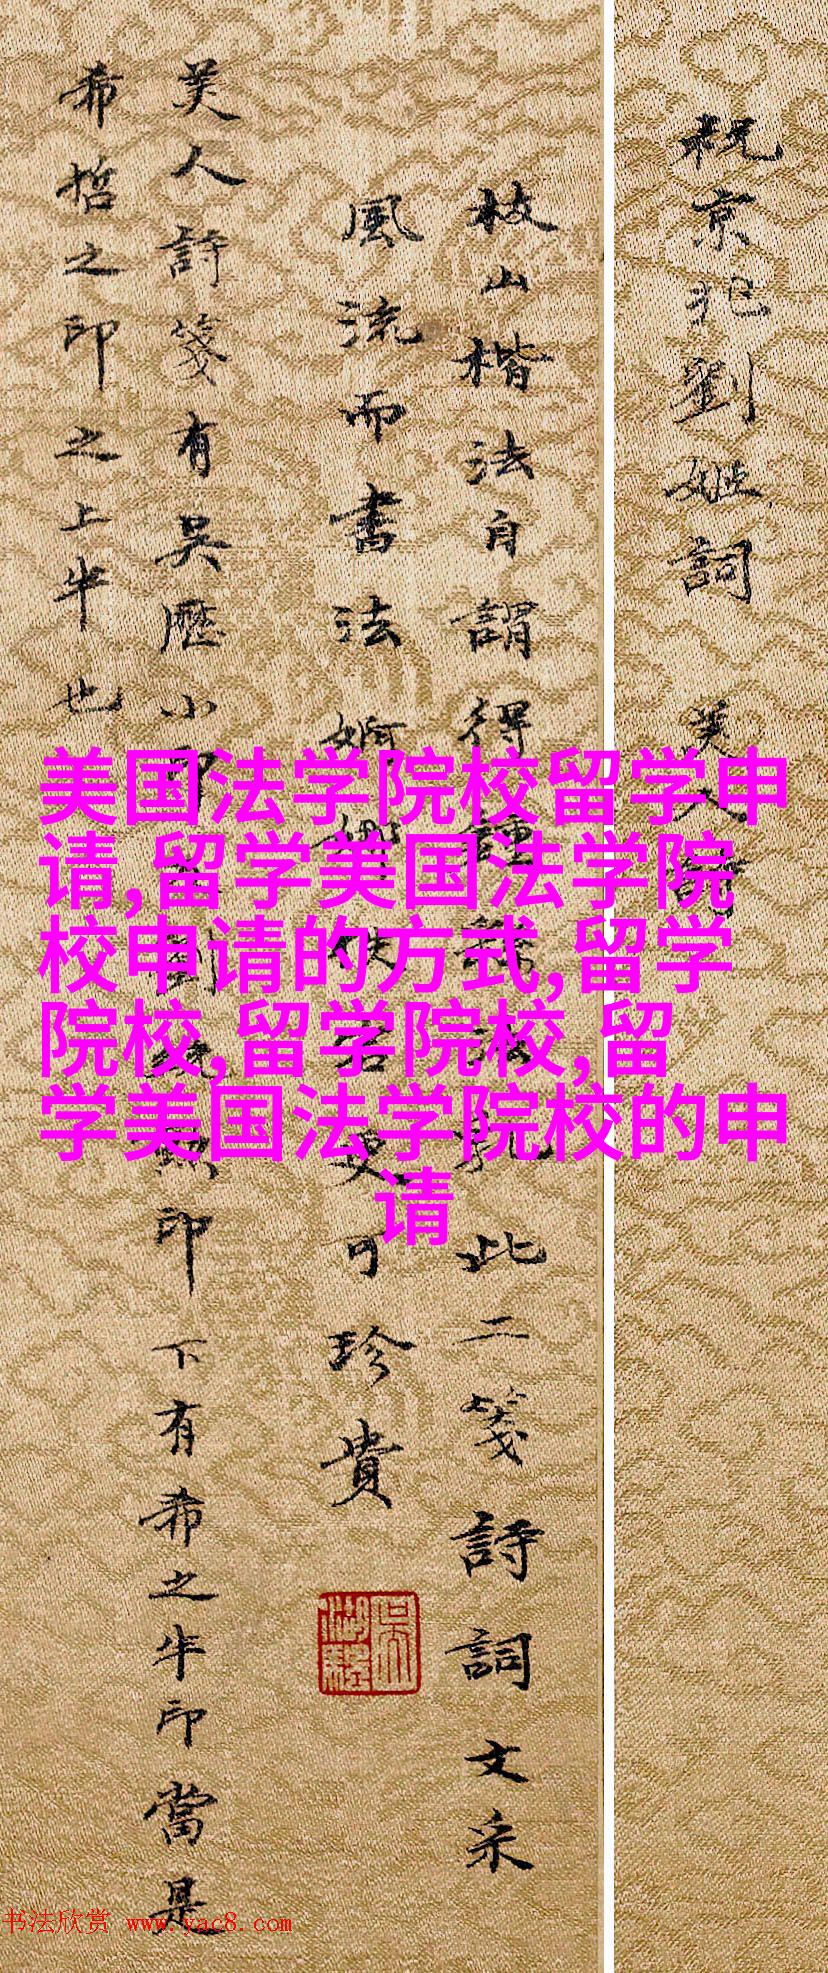 祝京兆劉姬詞 美人詩
枝山楷法自謂得鍾法乳此二箋詩詞文采
風流而書法婀娜宕更可珍貴
美人詩箋有吳歷小印印下有希之半印當是
希哲之印之上半也
美国法学院校留学申
请,留学美国法学院
校申请的方式,留学
院校,留学院校,留
学美国法学院校的申
请
书法欣赏 www.yac8.com